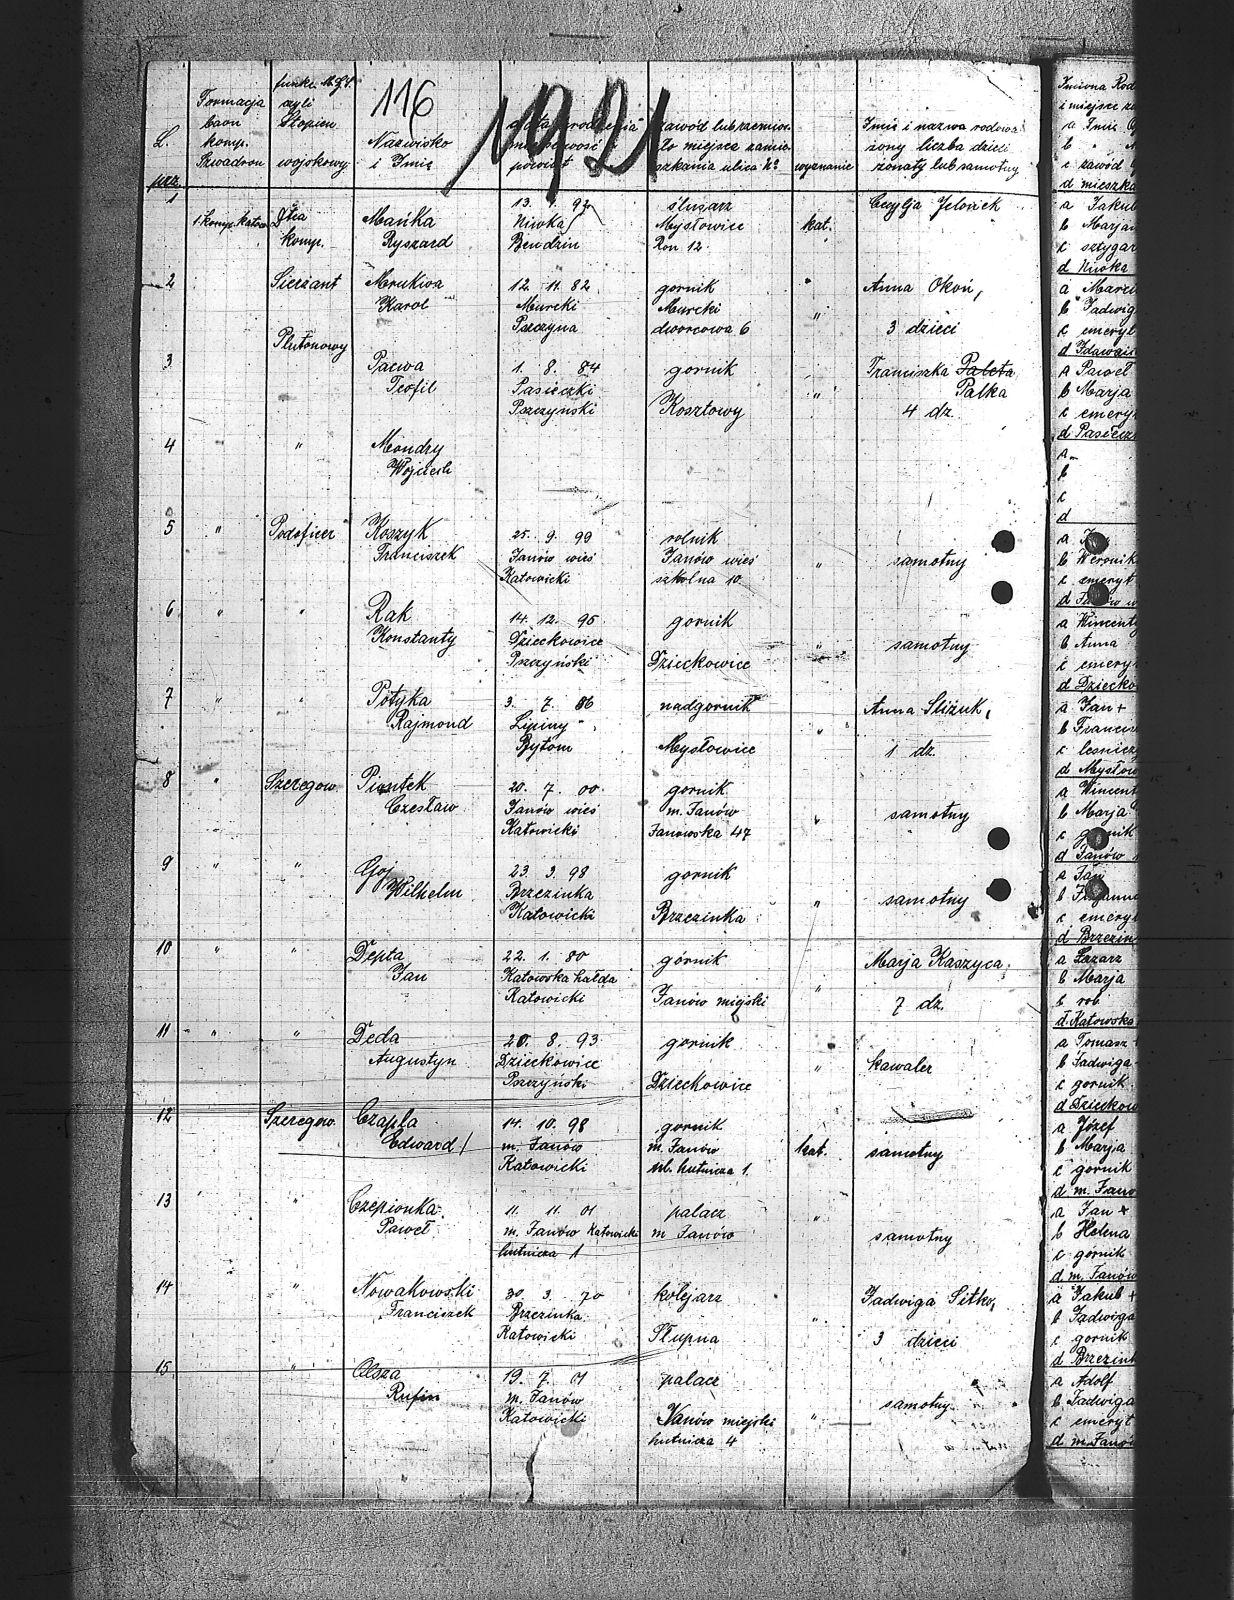 116
1921
L. prz.
Formacja baon komp. Szwadron
funkc. czyli Stopien wojskowy
Nazwisko i Imię
data urodzenia miejscowość i powiat
zawód lub rzemiosło miejsce zamieszkania ulica №
wyznanie
Imię i nazwa rodowa żony liczba dzieci żonaty lub samotny
1
1. komp. katow.
Dtca komp.
Mańka Ryszard
Niwka Bendzin
ślusarz Mysłowice
kat.
Cecylja
2
Sierżant
Mrukwa Karol
12 11. 82 Murcki Pszczyna
gornik Murcki dworcowa 6
"
Anna Okoń, 3 dzieci
3
Plutonowy
Pacwa Teofil
1. 8. 84 Pasieczki Pszczyński
gornik Kosztowy
"
Franciszka Paleta Palka 4 dz.
4
"
Mondry Wojciech
5
"
Podoficer
Koszyk Franciszek
25. 9. 99 Janów wieś Katowicki
rolnik Janów wieś szkolna 10.
"
samotny
6
"
"
Rak Konstanty
14. 12. 95 Dzieckowice Pszczyński
gornik Dzieckowice
"
samotny
7
"
"
Potyka Rajmond
3. 7. 86 Lipiny Bytom
nadgornik Mysłowice
"
Anna Sliżuk, 1 dz.
8
"
Szeregow.
Piontek Czesław
20. 7. 00. Janów wieś Katowicki
gornik m. Janów Janowska 47
"
samotny
9
"
"
Goj Wilhelm
23. 3. 98 Brzezinka Katowicki
gornik Brzezinka
"
samotny
10
"
"
Depta Jan
22. 1. 80 Katowska hałda Katowicki
górnik Janów miejski
"
Marja Kaszyca, 7 dz.
11
"
"
Deda Augustyn
20. 8. 93. Dzieckowice Pszczyński
gornik Dzieckowice
"
kawaler
12
Szeregow.
Czapla Edward
14. 10. 98 m. Janów Katowicki
gornik m. Janów ul. hutnicza 1.
kat.
samotny
13
"
Czepionka Paweł
11. 11. 01 m. Janów Katowicki hutnicza 1
palacz m Janów
"
samotny
14
"
Nowakowski Franciszek
30. 3. 70 Brzezinka Katowicki
kolejarz Słupna
"
Jadwiga Sitko, 3 dzieci
15.
"
Olsza Rufin
19. 7. 01 m. Janów Katowicki
palacz Janów miejski hutnicza 4
"
samotny
Imiona
i miejsce
a Imię
b "
c zawód
d
a Jakub
b Marja
c sztygar
d Niwka
a
b Jadwiga
c emeryt
d
a Paweł
b Marja
c
d
a
b
c
d
a
b Weronika
c emeryt
d
a Wincenty
b Anna
c emeryt
d
a Jan +
b
c
d
a Wincent
b Marja
c
d Janów
a Jan
b
c emeryt
d
a Łazarz
b Marja
c rob.
d Katowska
a Tomasz
b Jadwiga
c gornik
d
a Józef
b Marja
c gornik
d
a Jan +
b Helena
c górnik
d m. Janów
a Jakub +
b Jadwiga
c gornik
d
a Adolf
b Jadwiga
c emeryt
d